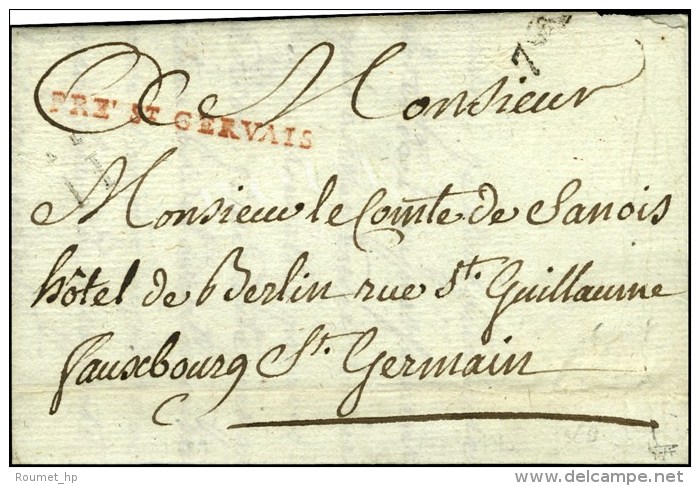 A Monsieur
PRE' ST GERVAIS
Monsieur le Comte de Sanois
hôtel de Berlin rue St. Guillaume
fauxbourg St. Germain
Roumet_hp
www.delcampe.net